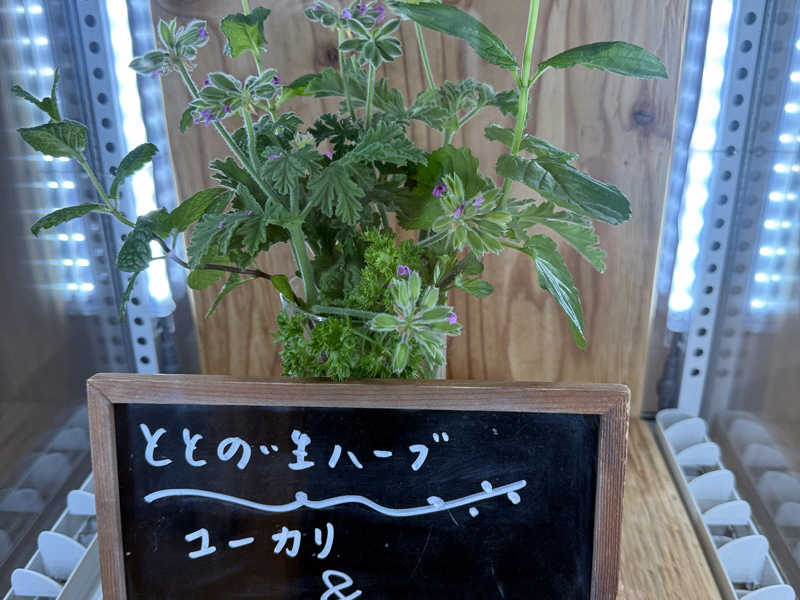 ととのい生ハーブ
ユーカリ
&